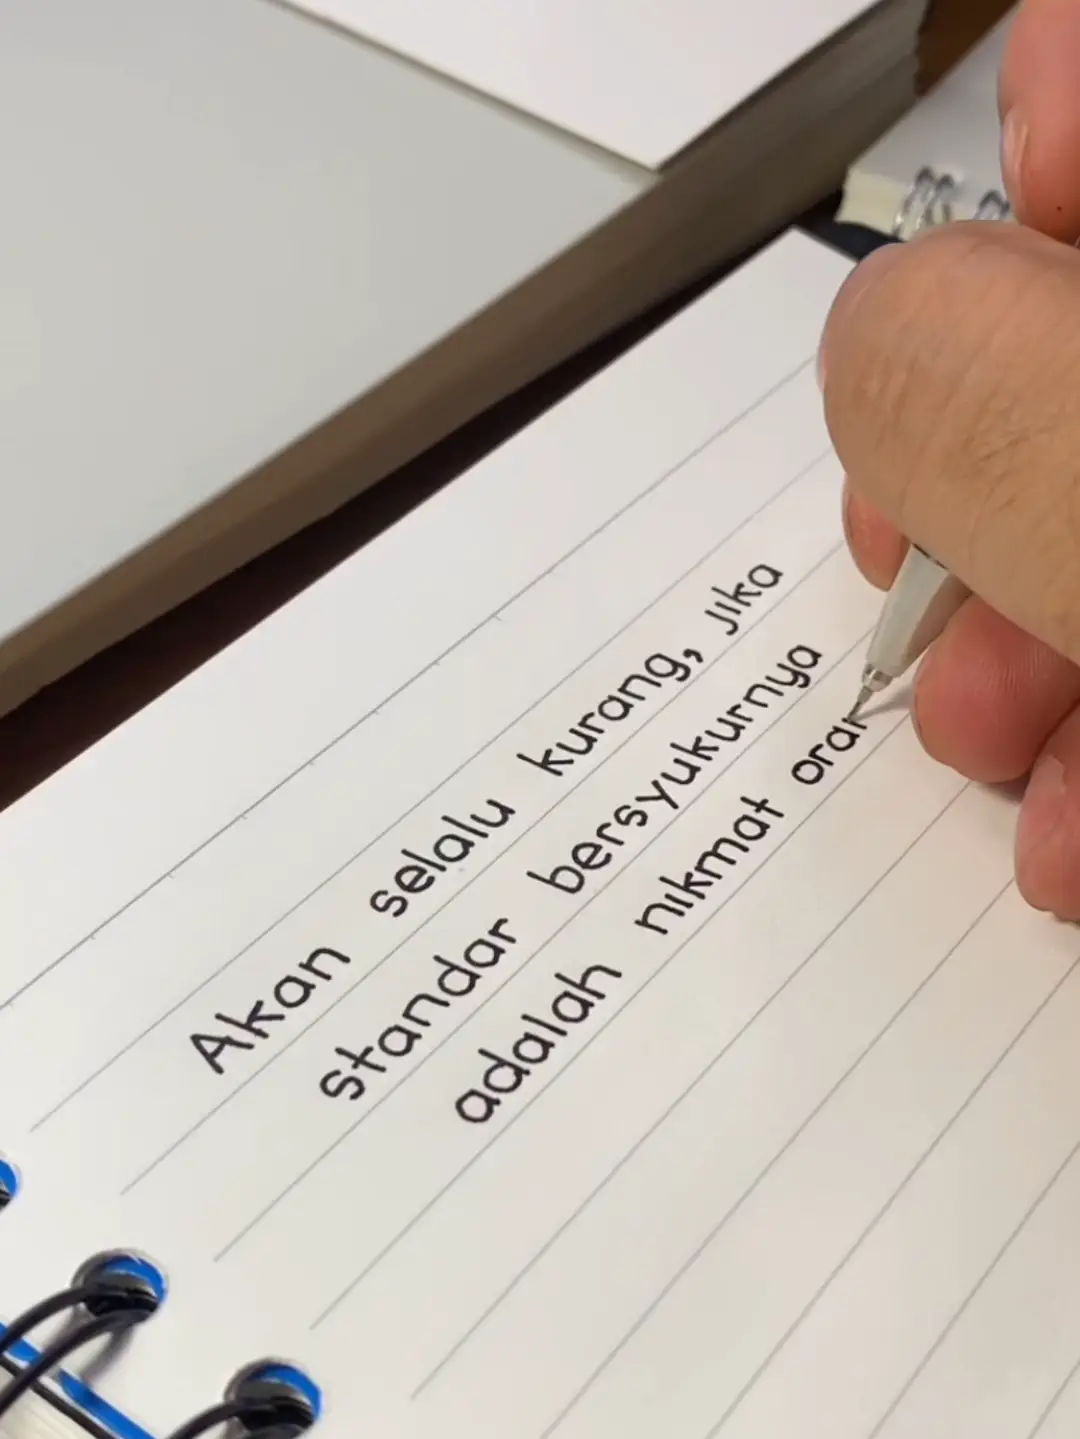 Akan selalu kurang, jika
standar bersyukurnya
adalah nikmat oran